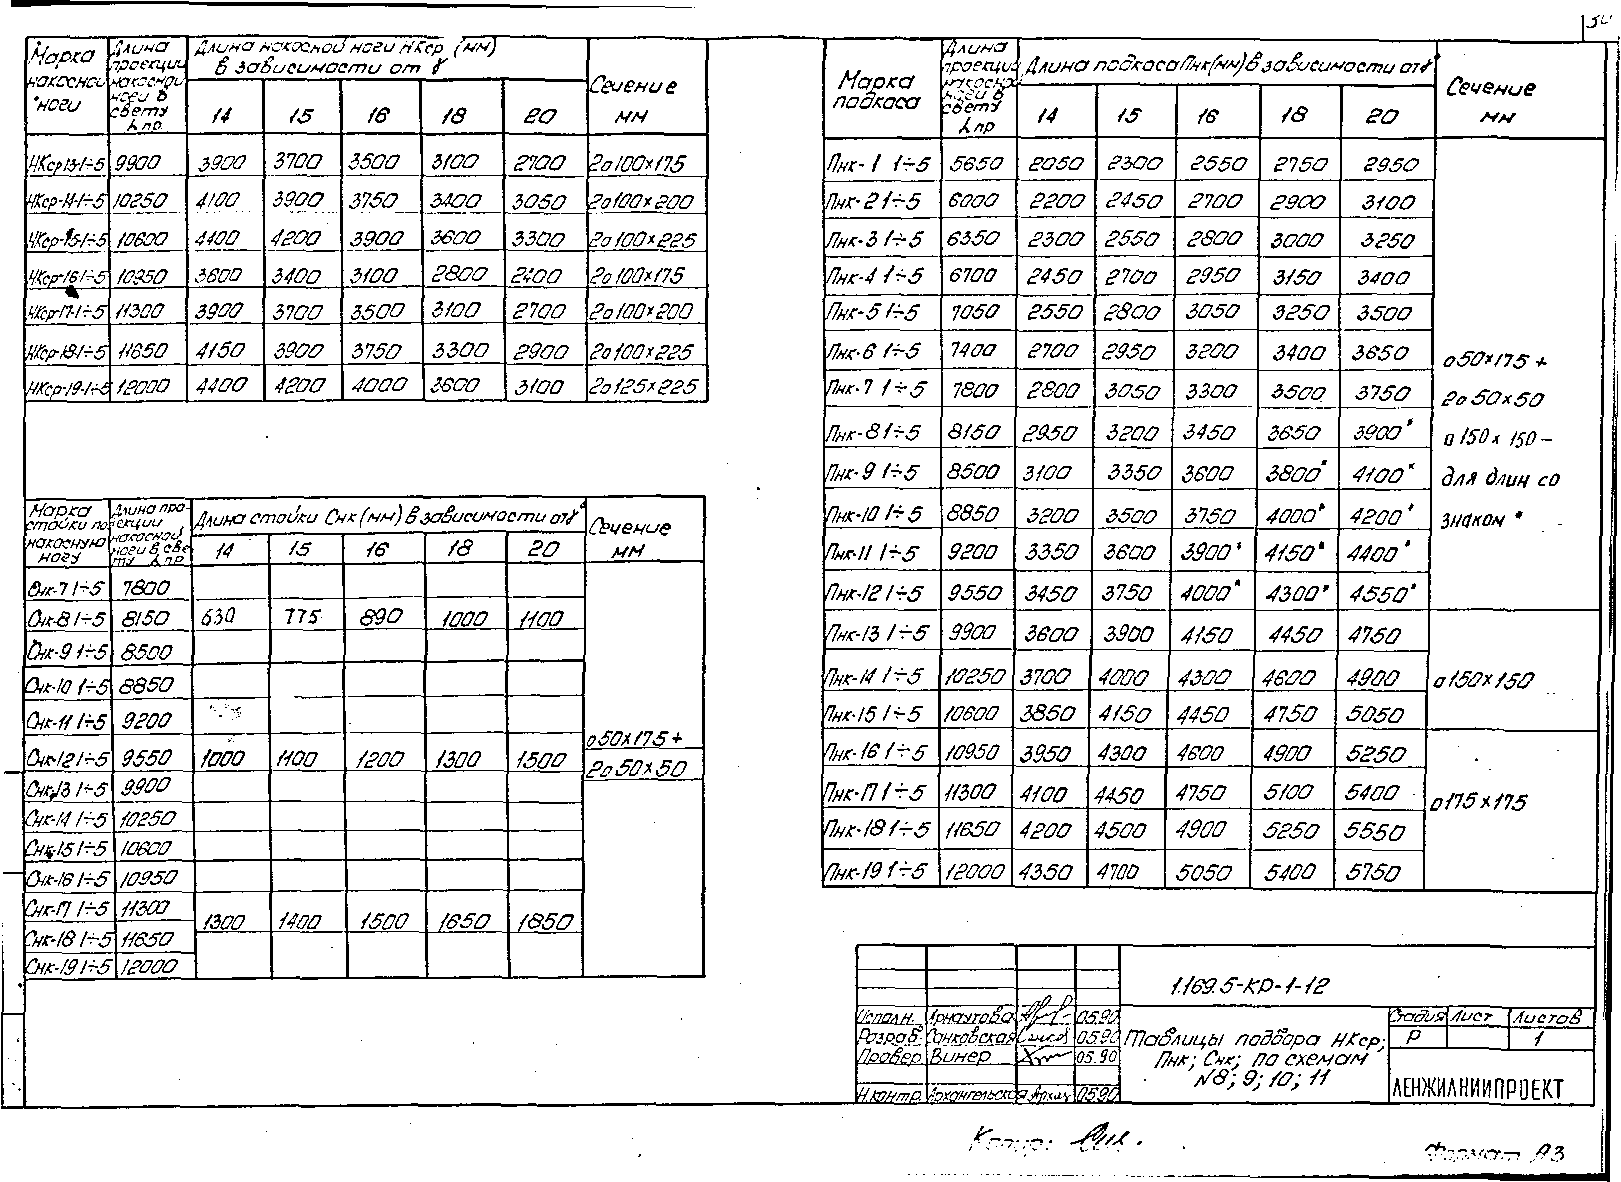 34
Марка накосной ноги | Длина проекции накосной ноги в свету λпр | Длина накосной ноги НКср (мм) в зависимости от γ | Сечение мм
14 | 15 | 16 | 18 | 20
НКср13-1÷5 | 9900 | 3900 | 3700 | 3500 | 3100 | 2700 | 2о100×175
НКср-14-1÷5 | 10250 | 4100 | 3900 | 3750 | 3400 | 3050 | 2о100×200
НКср-15-1÷5 | 10600 | 4400 | 4200 | 3900 | 3600 | 3300 | 2о100×225
НКср-16 1÷5 | 10950 | 3600 | 3400 | 3100 | 2800 | 2400 | 2о100×175
НКср-17-1÷5 | 11300 | 3900 | 3700 | 3500 | 3100 | 2700 | 2о100×200
НКср-18 1÷5 | 11650 | 4150 | 3900 | 3750 | 3300 | 2900 | 2о100×225
НКср-19-1÷5 | 12000 | 4400 | 4200 | 4000 | 3600 | 3100 | 2о125×225
Марка стойки по накосную ногу | Длина проекции накосной ноги в свету λпр | Длина стойки Снк (мм) в зависимости от γ° | Сечение мм
14 | 15 | 16 | 18 | 20
Снк-7 1÷5 | 7800
Снк-8 1÷5 | 8150 | 630 | 775 | 890 | 1000 | 1100
Снк-9 1÷5 | 8500
Снк-10 1÷5 | 8850
Снк-11 1÷5 | 9200
Снк-12 1÷5 | 9550 | 1000 | 1100 | 1200 | 1300 | 1500 | о50×175 + 2о50×50
Снк-13 1÷5 | 9900
Снк-14 1÷5 | 10250
Снк-15 1÷5 | 10600
Снк-16 1÷5 | 10950
Снк-17 1÷5 | 11300 | 1300 | 1400 | 1500 | 1650 | 1850
Снк-18 1÷5 | 11650
Снк-19 1÷5 | 12000
Марка подкоса | Длина проекции накосной ноги в свету λпр | Длина подкоса Пнк (мм) в зависимости от γ° | Сечение мм
14 | 15 | 16 | 18 | 20
Пнк-1 1÷5 | 5650 | 2050 | 2300 | 2550 | 2750 | 2950
Пнк-2 1÷5 | 6000 | 2200 | 2450 | 2700 | 2900 | 3100
Пнк-3 1÷5 | 6350 | 2300 | 2550 | 2800 | 3000 | 3250
Пнк-4 1÷5 | 6700 | 2450 | 2700 | 2950 | 3150 | 3400
Пнк-5 1÷5 | 7050 | 2550 | 2800 | 3050 | 3250 | 3500
Пнк-6 1÷5 | 7400 | 2700 | 2950 | 3200 | 3400 | 3650 | о50×175 +
Пнк-7 1÷5 | 7800 | 2800 | 3050 | 3300 | 3500 | 3750 | 2о50×50
Пнк-8 1÷5 | 8150 | 2950 | 3200 | 3450 | 3650 | 3900* | о150×150 –
Пнк-9 1÷5 | 8500 | 3100 | 3350 | 3600 | 3800* | 4100* | для длин со
Пнк-10 1÷5 | 8850 | 3200 | 3500 | 3750 | 4000* | 4200* | знаком *
Пнк-11 1÷5 | 9200 | 3350 | 3600 | 3900* | 4150* | 4400*
Пнк-12 1÷5 | 9550 | 3450 | 3750 | 4000* | 4300* | 4550*
Пнк-13 1÷5 | 9900 | 3600 | 3900 | 4150 | 4450 | 4750
Пнк-14 1÷5 | 10250 | 3700 | 4000 | 4300 | 4600 | 4900 | о150×150
Пнк-15 1÷5 | 10600 | 3850 | 4150 | 4450 | 4750 | 5050
Пнк-16 1÷5 | 10950 | 3950 | 4300 | 4600 | 4900 | 5250
Пнк-17 1÷5 | 11300 | 4100 | 4450 | 4750 | 5100 | 5400 | о175×175
Пнк-18 1÷5 | 11650 | 4200 | 4500 | 4900 | 5250 | 5550
Пнк-19 1÷5 | 12000 | 4350 | 4700 | 5050 | 5400 | 5750
1.169.5-КР-1-12
Исполн. | Арнаутова | 05.90
Разраб. | Санковская | 05.90
Провер. | Винер | 05.90
Н.контр. | Архангельская | 05.90
Таблицы подбора НКср;
Пнк; Снк; по схемам
№8; 9; 10; 11
Стадия | Лист | Листов
Р | 1
ЛЕНЖИЛНИИПРОЕКТ
Копир:
Формат А3